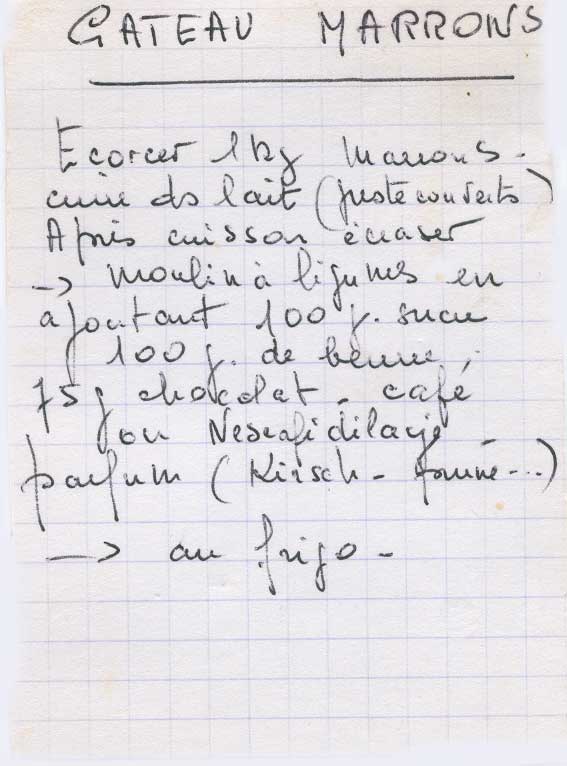 GATEAU MARRONS
Ecorcer 1 kg Marrons -
cuire ds lait (juste couverts)
Après cuisson écraser
-> moulin à légumes en
ajoutant 100 g. sucre
100 g. de beurre,
75 g chocolat - café
ou Nescafé dilué
parfum (Kirsch - ...)
-> au frigo -